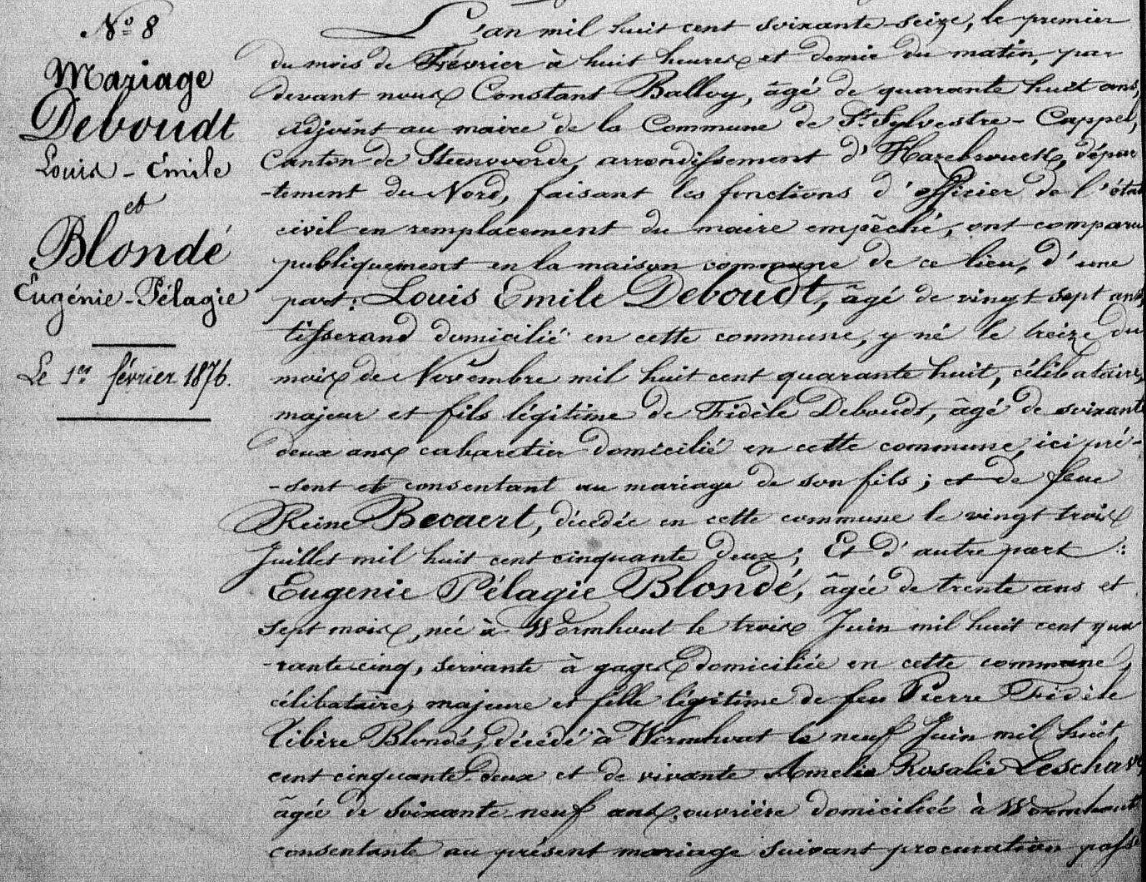 N° 8
Mariage
Deboudt
Louis - Émile
et
Blondé
Eugénie - Pélagie
Le 1er février 1876.
L'an mil huit cent soixante-seize, le premier
du mois de Février à huit heures et demie du matin, par
devant nous Constant Balloy, âgé de quarante huit ans,
adjoint au maire de la Commune de St. Sylvestre-Cappel,
Canton de Steenvorde, arrondissement d'Hazebrouck, dépar
-tement du Nord, faisant les fonctions d'officier de l'état
civil en remplacement du maire empêché, ont comparu
publiquement en la maison commune de ce lieu, d'une
part: Louis Emile Deboudt, âgé de vingt sept ans
tisserand domicilié en cette commune, y né le treize du
mois de Novembre mil huit cent quarante huit, célibataire,
majeur et fils légitime de Fidèle Deboudt, âgé de soixante
deux ans cabaretier domicilié en cette commune, ici pré-
-sent et consentant au mariage de son fils; et de feue
Reine Becaert, décédée en cette commune le vingt trois
Juillet mil huit cent cinquante deux; Et d'autre part:
Eugenie Pélagie Blondé, âgée de trente ans et
sept mois, née à Wormhout le trois Juin mil huit cent qua
-rante cinq, servante à gages domiciliée en cette commune,
célibataire, majeure et fille légitime de feu Pierre Fidèle
Libère Blondé, décédé à Wormhout le neuf Juin mil huit
cent cinquante deux et de vivante Amelie Rosalie Leschave
âgée de soixante neuf ans, ouvrière domiciliée à Wormhout
consentante au présent mariage suivant procuration passé